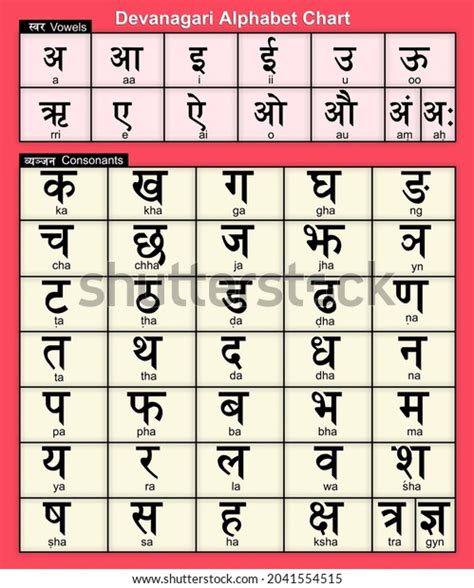 Devanagari Alphabet Chart
स्वर Vowels
अ आ इ ई उ ऊ
a aa i ii u oo
ऋ ए ऐ ओ औ अं अः
rri e ai o au aṃ aḥ
व्यञ्जन Consonants
क ख ग घ ङ
ka kha ga gha ng
च छ ज झ ञ
cha chha ja jha yn
shutterstock
ट ठ ड ढ ण
ṭa ṭha ḍa ḍha ṇa
त थ द ध न
ta tha da dha na
प फ ब भ म
pa pha ba bha ma
य र ल व श
ya ra la wa śha
ष स ह क्ष त्र ज्ञ
ṣha sa ha ksha tra gyn
shutterstock.com · 2041554515